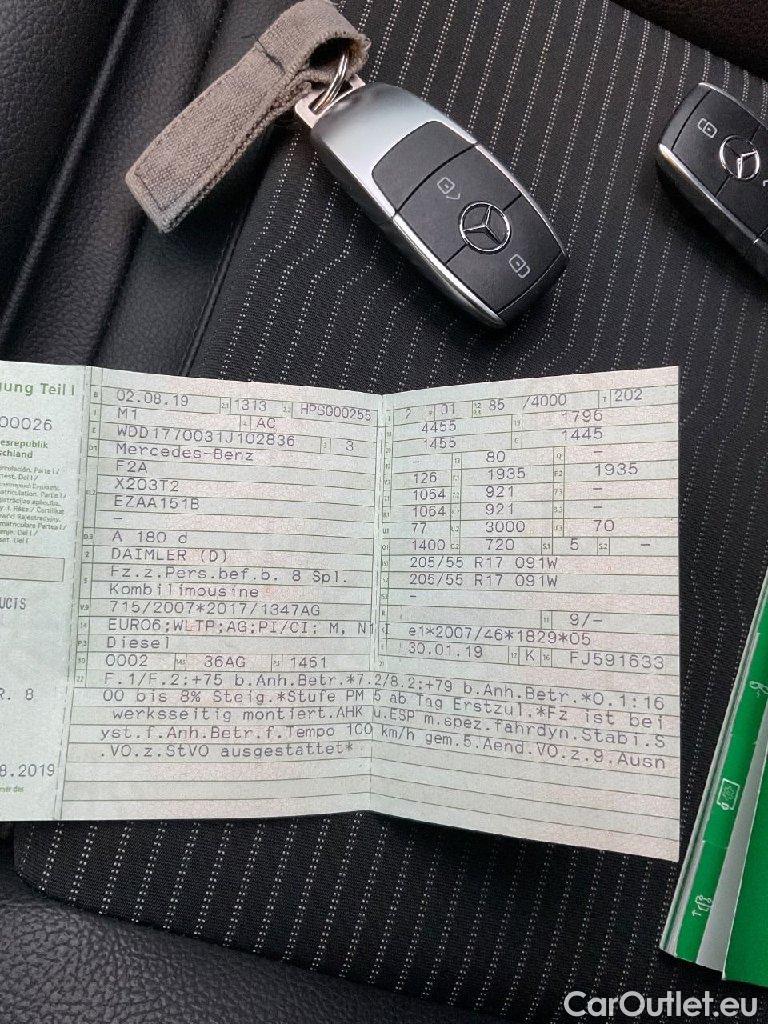 ung Teil I
00026
esrepublik
schland
UCIS
R. 8
8.2019
B 02.08.19 1313 HPS000256
M1 AC
E WDD1770031J102836 3
D.1 Mercedes-Benz
F2A
D.2 X203T2
EZAA151B
–
D.3 A 180 d
2 DAIMLER (D)
5 Fz.z.Pers.bef.b. 8 Spl.
Kombilimousine
V.9 715/2007*2017/1347AG
14 EURO6;WLTP;AG;PI/CI; M, N1 I
P.3 Diesel
10 0002 14.1 36AG P.1 1461
2 01 85 /4000 T 202
4455 1796
1455 1445
– 80 –
126 1935 1935
1064 921 –
1064 921 –
77 3000 70
1400 720 S.1 5 S.2 –
205/55 R17 091W
205/55 R17 091W
–
9/–
e1*2007/46*1829*05
30.01.19 17 K 16 FJ591633
22 F.1/F.2:+75 b.Anh.Betr.*7.2/8.2:+79 b.Anh.Betr.*O.1:16
00 bis 8% Steig.*Stufe PM 5 ab Tag Erstzul.*Fz ist bei
werksseitig montiert.AHK u.ESP m.spez.fahrdyn.Stabi.S
yst.f.Anh.Betr.f.Tempo 100 km/h gem.5.Aend.VO.z.9.Ausn
.VO.z.StVO ausgestattet*
CarOutlet.eu